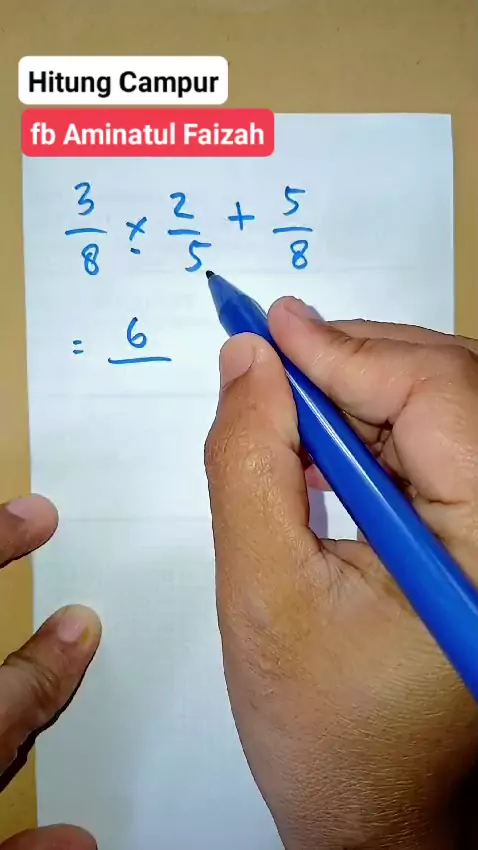 Hitung Campur
fb Aminatul Faizah
3/8 × 2/5 + 5/8
= 6/